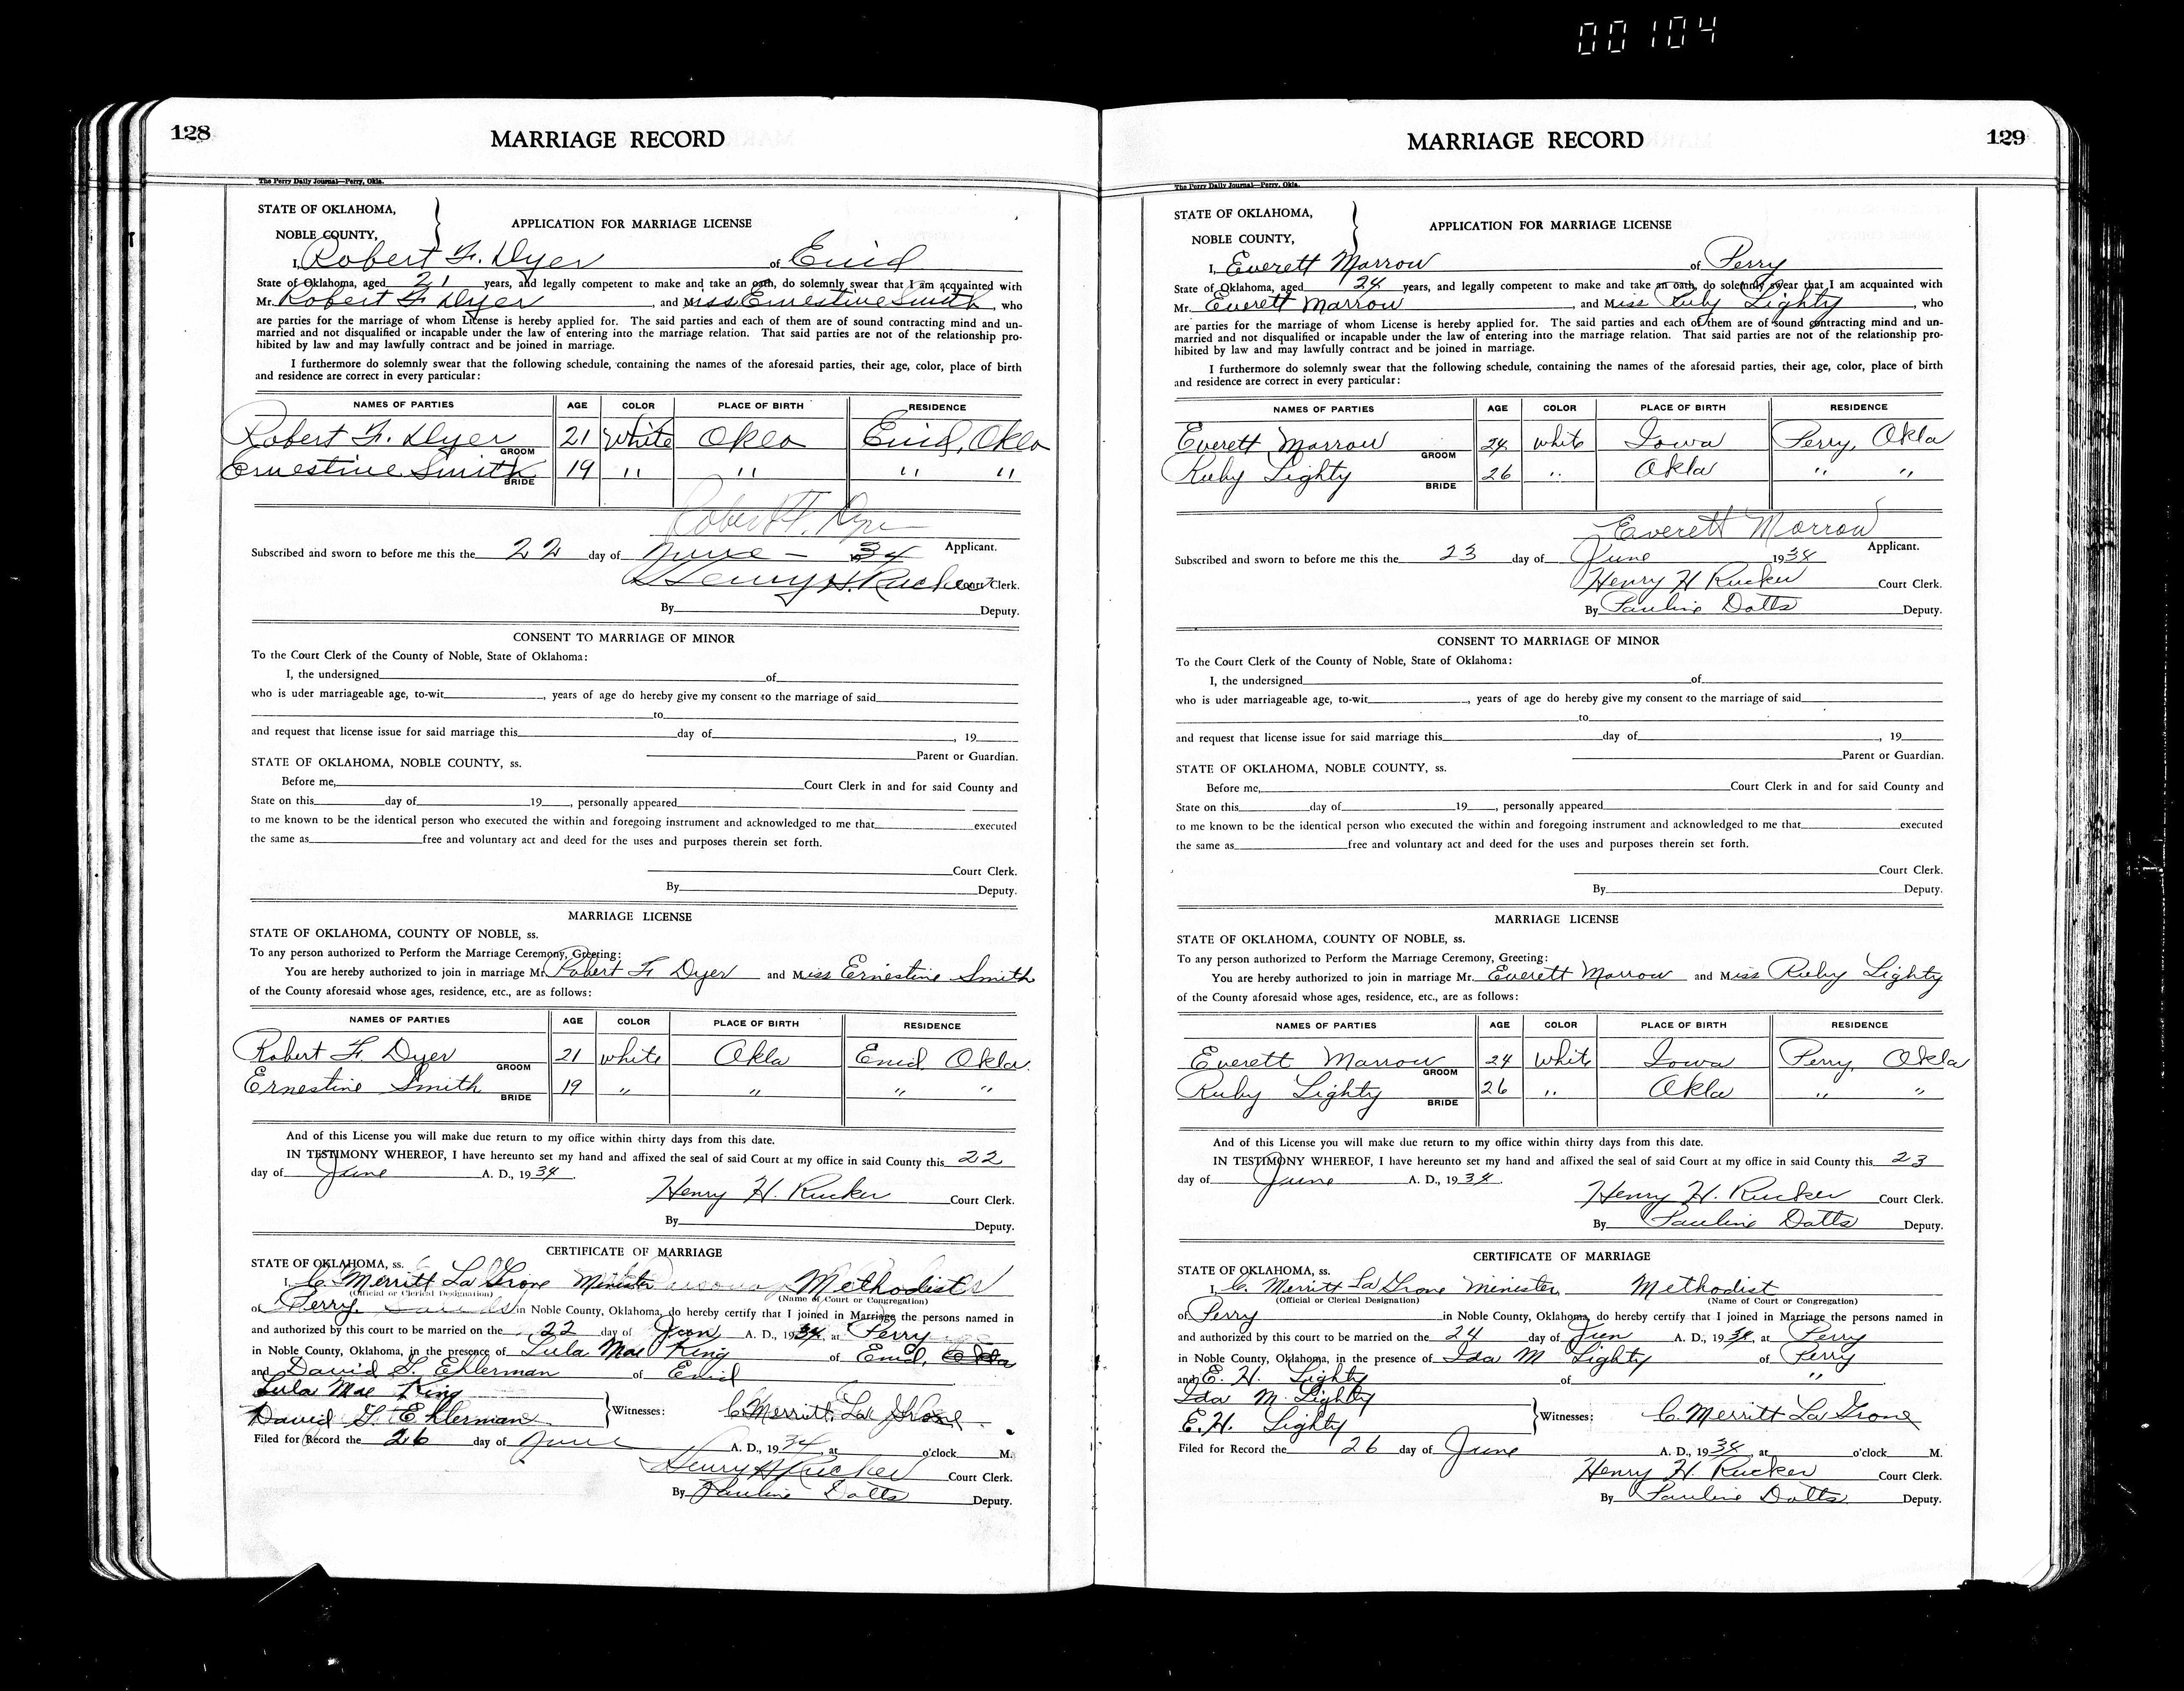 00104
128
MARRIAGE RECORD
The Perry Daily Journal—Perry, Okla.
STATE OF OKLAHOMA,
NOBLE COUNTY,
APPLICATION FOR MARRIAGE LICENSE
I, Robert F. Dyer of Enid
State of Oklahoma, aged 21 years, and legally competent to make and take an oath, do solemnly swear that I am acquainted with
Mr. Robert F Dyer, and Miss Ernestine Smith, who
are parties for the marriage of whom License is hereby applied for. The said parties and each of them are of sound contracting mind and un-
married and not disqualified or incapable under the law of entering into the marriage relation. That said parties are not of the relationship pro-
hibited by law and may lawfully contract and be joined in marriage.
I furthermore do solemnly swear that the following schedule, containing the names of the aforesaid parties, their age, color, place of birth
and residence are correct in every particular:
NAMES OF PARTIES AGE COLOR PLACE OF BIRTH RESIDENCE
Robert F. Dyer GROOM 21 White Okla Enid, Okla
Ernestine Smith BRIDE 19 " " " "
Robert F. Dyer
Applicant.
Subscribed and sworn to before me this the 22 day of June — 34
Henry H. Rucker Court Clerk.
By Deputy.
CONSENT TO MARRIAGE OF MINOR
To the Court Clerk of the County of Noble, State of Oklahoma:
I, the undersigned of
who is uder marriageable age, to-wit , years of age do hereby give my consent to the marriage of said
to
and request that license issue for said marriage this day of , 19
Parent or Guardian.
STATE OF OKLAHOMA, NOBLE COUNTY, ss.
Before me, Court Clerk in and for said County and
State on this day of 19 , personally appeared
to me known to be the identical person who executed the within and foregoing instrument and acknowledged to me that executed
the same as free and voluntary act and deed for the uses and purposes therein set forth.
Court Clerk.
By Deputy.
MARRIAGE LICENSE
STATE OF OKLAHOMA, COUNTY OF NOBLE, ss.
To any person authorized to Perform the Marriage Ceremony, Greeting:
You are hereby authorized to join in marriage Mr. Robert F Dyer and Miss Ernestine Smith
of the County aforesaid whose ages, residence, etc., are as follows:
NAMES OF PARTIES AGE COLOR PLACE OF BIRTH RESIDENCE
Robert F. Dyer GROOM 21 white Okla Enid Okla.
Ernestine Smith BRIDE 19 " " " "
And of this License you will make due return to my office within thirty days from this date.
IN TESTIMONY WHEREOF, I have hereunto set my hand and affixed the seal of said Court at my office in said County this 22
day of June A. D., 1934.
Henry H. Rucker Court Clerk.
By Deputy.
CERTIFICATE OF MARRIAGE
STATE OF OKLAHOMA, ss.
I, C. Merritt La Grone Minister Methodist
(Official or Clerical Designation) (Name of Court or Congregation)
of Perry in Noble County, Oklahoma, do hereby certify that I joined in Marriage the persons named in
and authorized by this court to be married on the 22 day of Jun A. D., 1934, at Perry
in Noble County, Oklahoma, in the presence of Lula Mae King of Enid, Okla
and David G. Ehlerman of Enid
Lula Mae King
David G. Ehlerman Witnesses: C. Merritt La Grone
Filed for Record the 26 day of June A. D., 1934, at o'clock M.
Henry H Rucker Court Clerk.
By Pauline Dotts Deputy.
129
MARRIAGE RECORD
The Perry Daily Journal—Perry, Okla.
STATE OF OKLAHOMA,
NOBLE COUNTY,
APPLICATION FOR MARRIAGE LICENSE
I, Everett Morrow of Perry
State of Oklahoma, aged 24 years, and legally competent to make and take an oath, do solemnly swear that I am acquainted with
Mr. Everett Morrow, and Miss Ruby Lighty, who
are parties for the marriage of whom License is hereby applied for. The said parties and each of them are of sound contracting mind and un-
married and not disqualified or incapable under the law of entering into the marriage relation. That said parties are not of the relationship pro-
hibited by law and may lawfully contract and be joined in marriage.
I furthermore do solemnly swear that the following schedule, containing the names of the aforesaid parties, their age, color, place of birth
and residence are correct in every particular:
NAMES OF PARTIES AGE COLOR PLACE OF BIRTH RESIDENCE
Everett Morrow GROOM 24 white Iowa Perry, Okla
Ruby Lighty BRIDE 26 " Okla " "
Everett Morrow
Applicant.
Subscribed and sworn to before me this the 23 day of June 1934
Henry H Rucker Court Clerk.
By Pauline Dotts Deputy.
CONSENT TO MARRIAGE OF MINOR
To the Court Clerk of the County of Noble, State of Oklahoma:
I, the undersigned of
who is uder marriageable age, to-wit , years of age do hereby give my consent to the marriage of said
to
and request that license issue for said marriage this day of , 19
Parent or Guardian.
STATE OF OKLAHOMA, NOBLE COUNTY, ss.
Before me, Court Clerk in and for said County and
State on this day of 19 , personally appeared
to me known to be the identical person who executed the within and foregoing instrument and acknowledged to me that executed
the same as free and voluntary act and deed for the uses and purposes therein set forth.
Court Clerk.
By Deputy.
MARRIAGE LICENSE
STATE OF OKLAHOMA, COUNTY OF NOBLE, ss.
To any person authorized to Perform the Marriage Ceremony, Greeting:
You are hereby authorized to join in marriage Mr. Everett Morrow and Miss Ruby Lighty
of the County aforesaid whose ages, residence, etc., are as follows:
NAMES OF PARTIES AGE COLOR PLACE OF BIRTH RESIDENCE
Everett Morrow GROOM 24 White Iowa Perry, Okla
Ruby Lighty BRIDE 26 " Okla " "
And of this License you will make due return to my office within thirty days from this date.
IN TESTIMONY WHEREOF, I have hereunto set my hand and affixed the seal of said Court at my office in said County this 23
day of June A. D., 1934.
Henry H. Rucker Court Clerk.
By Pauline Dotts Deputy.
CERTIFICATE OF MARRIAGE
STATE OF OKLAHOMA, ss.
I, C. Merritt La Grone Minister, Methodist
(Official or Clerical Designation) (Name of Court or Congregation)
of Perry in Noble County, Oklahoma, do hereby certify that I joined in Marriage the persons named in
and authorized by this court to be married on the 24 day of Jun A. D., 1934, at Perry
in Noble County, Oklahoma, in the presence of Ida M Lighty of Perry
and E. H. Lighty of "
Ida M. Lighty
E. H. Lighty Witnesses: C. Merritt La Grone
Filed for Record the 26 day of June A. D., 1934, at o'clock M.
Henry H. Rucker Court Clerk.
By Pauline Dotts Deputy.